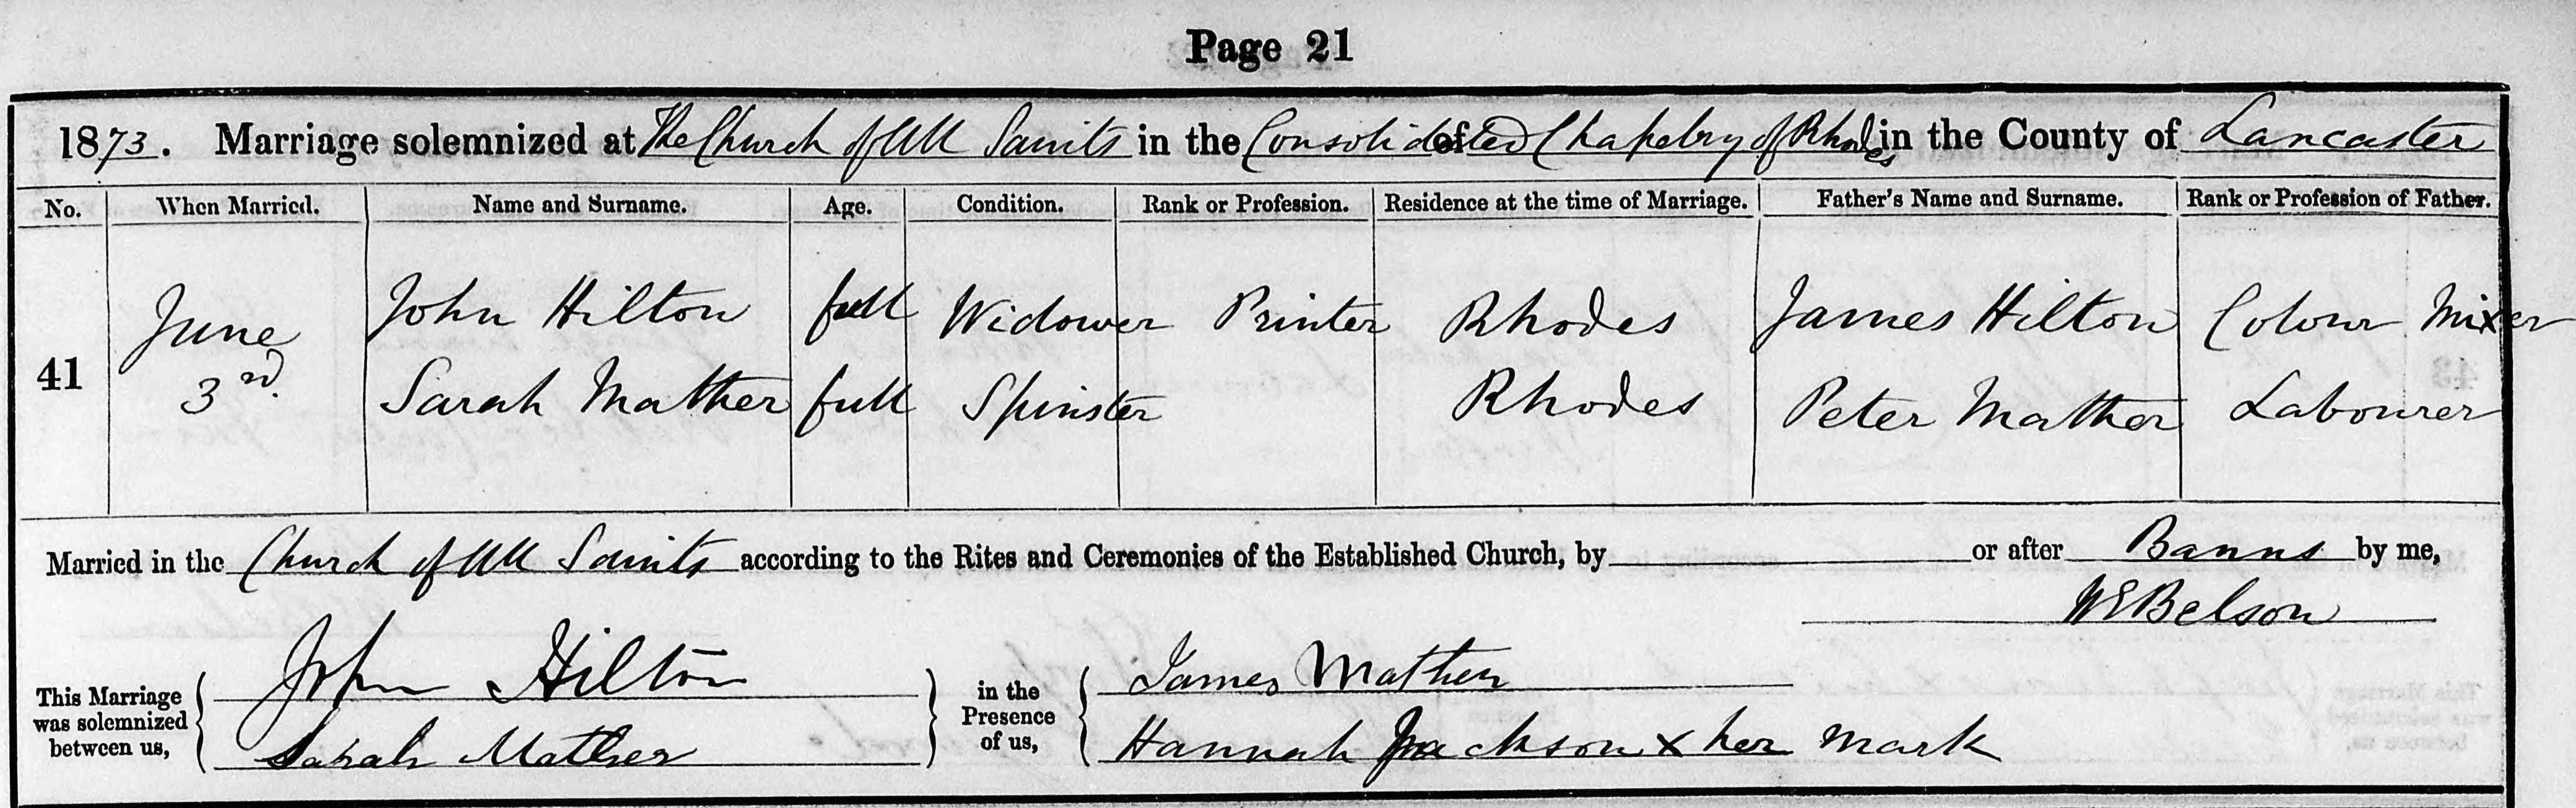 Page 21
1873. Marriage solemnized at The Church of All Saints in the Consolidated Chapelry of Rhodes in the County of Lancaster
No. When Married. Name and Surname. Age. Condition. Rank or Profession. Residence at the time of Marriage. Father's Name and Surname. Rank or Profession of Father.
41 June 3rd. John Hilton full Widower Printer Rhodes James Hilton Colour Mixer
Sarah Mather full Spinster Rhodes Peter Mather Labourer
Married in the Church of All Saints according to the Rites and Ceremonies of the Established Church, by or after Banns by me,
W E Belson
This Marriage was solemnized between us, { John Hilton } in the Presence of us, { James Mather
Sarah Mather Hannah Jackson x her mark